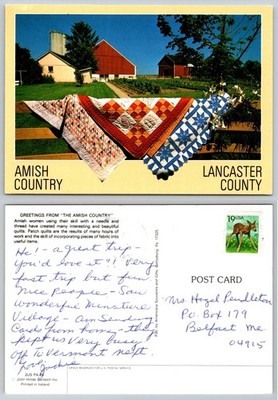 AMISH
COUNTRY
LANCASTER
COUNTY
GREETINGS FROM "THE AMISH COUNTRY"
Amish women using their skill with a needle and
thread have created many interesting and beautiful
quilts. Patch quilts are the results of many hours
of work and the skill of incorporating pieces of fabric into
useful items.
19 USA
Hi! - a great trip -
You'd love it!! Very
fast trip but fun.
Nice People - Saw
wonderful Miniature
Village - Am Sending
Cards from home - they
kept us very busy
off To Vermont next.
Love,
POST CARD
Mrs Hazel Pendleton
P.O. Box 179
Belfast Me
04915
© John Hinde
Printed in Ireland